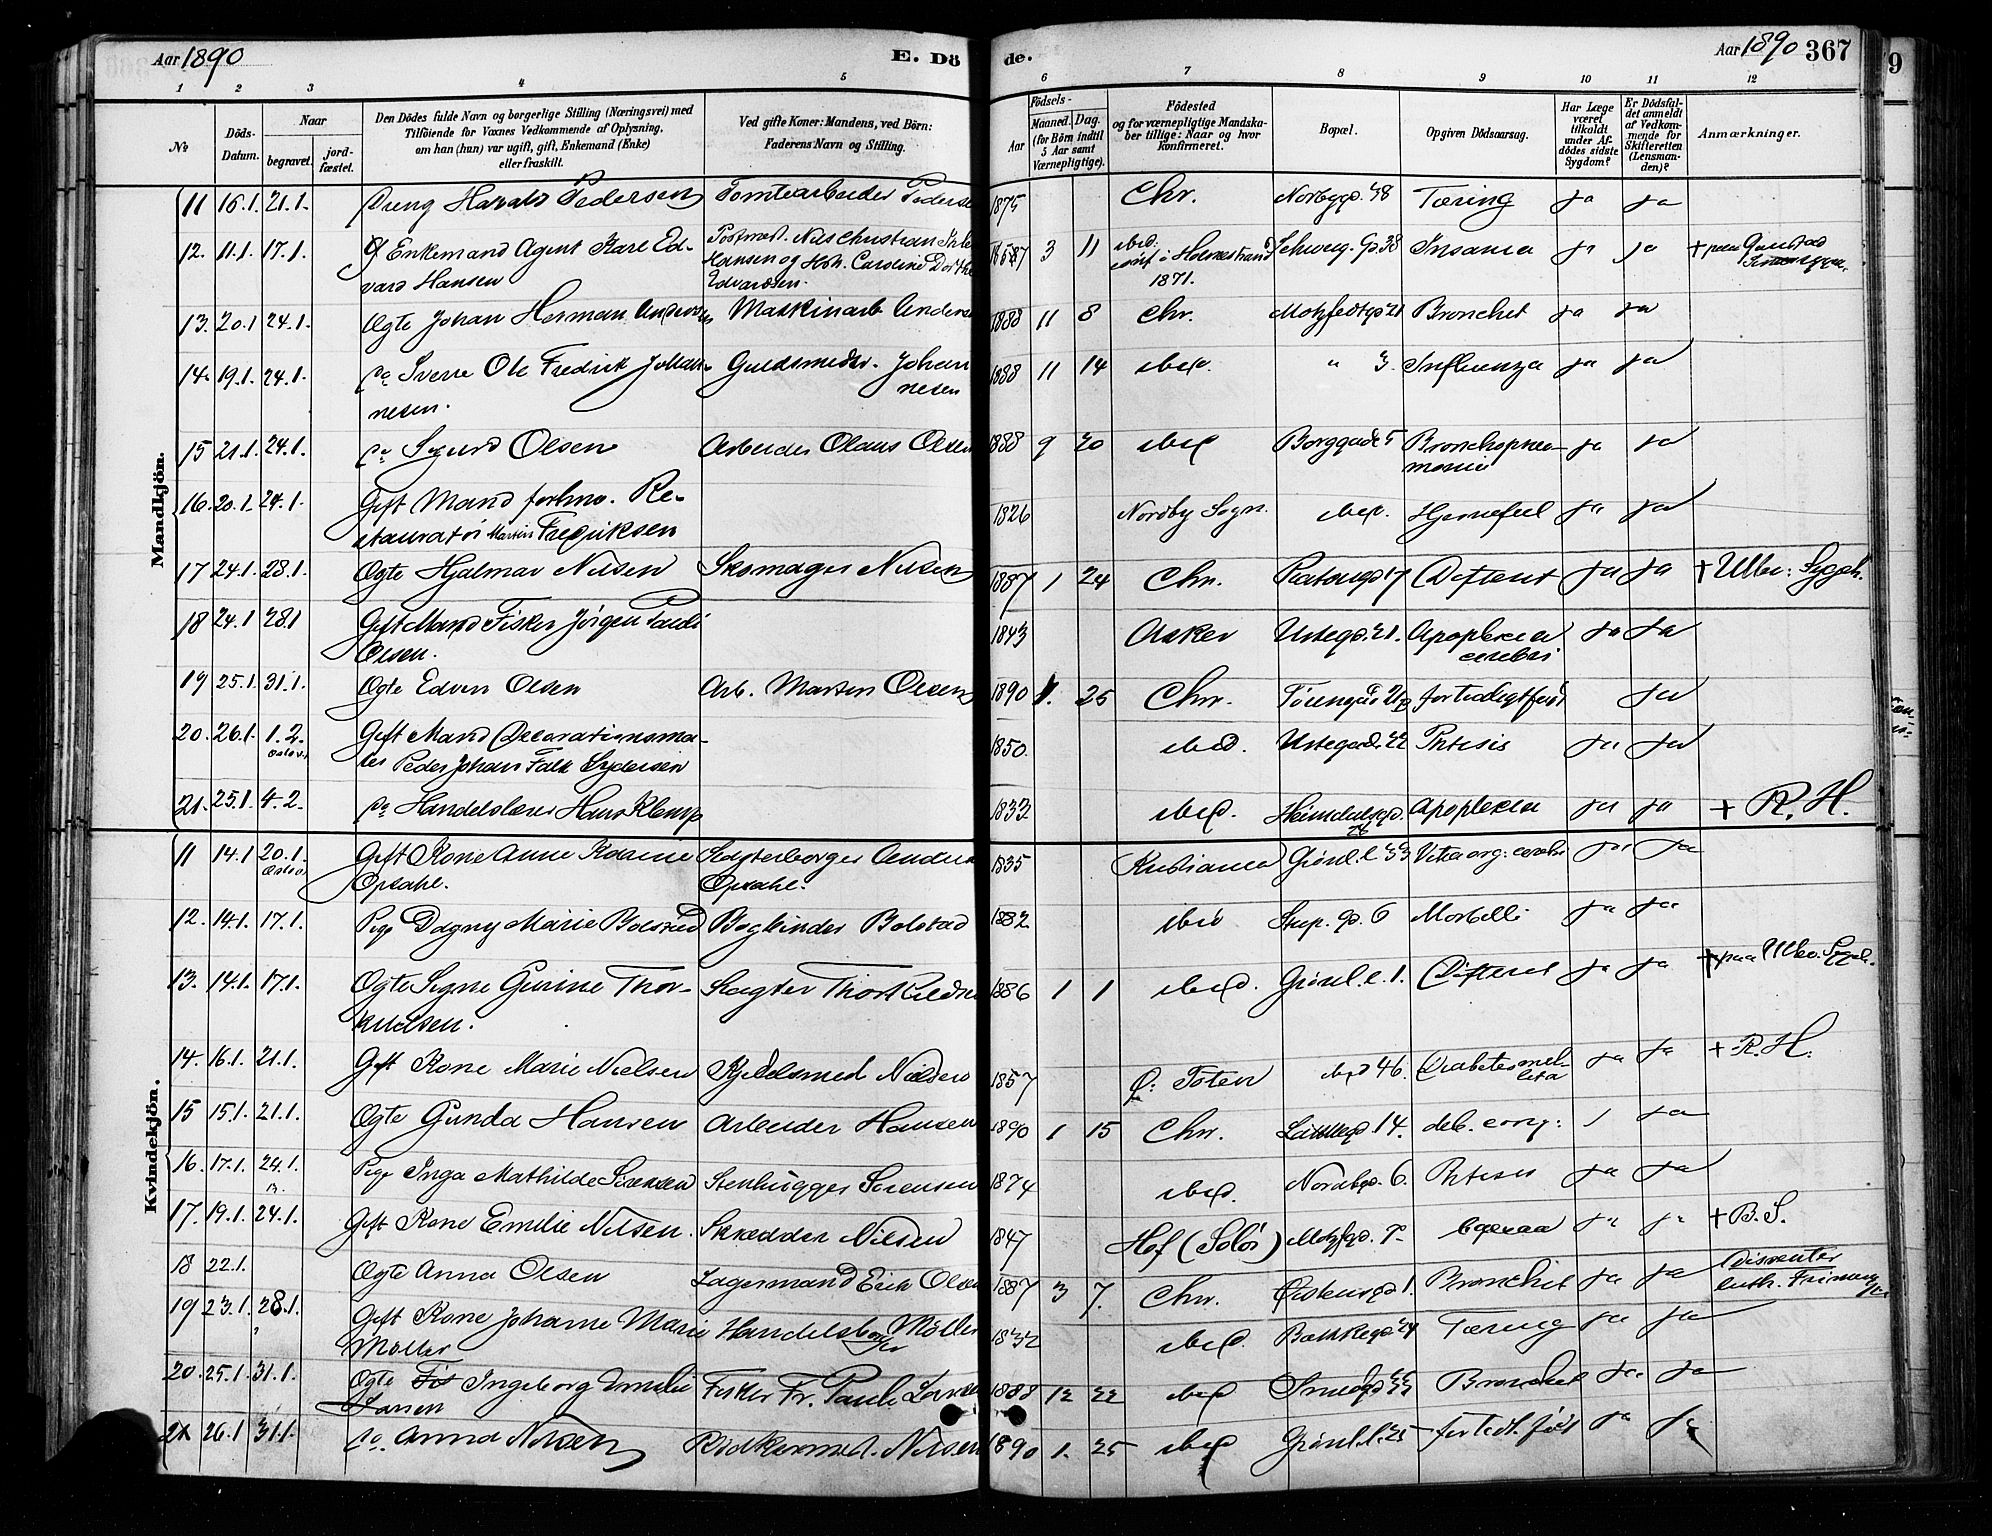 Aar 1890
E. Dö
de.
Aar 1890 367
9
1 2 3 4 5 6 7 8 9 10 11 12
No
Döds-Datum.
Naar
begravet.
jord-fæstet.
Den Dödes fulde Navn og borgerlige Stilling (Næringsvei) med
Tilföiende for Voxnes Vedkommende af Oplysning,
om han (hun) var ugift, gift, Enkemand (Enke)
eller fraskilt.
Ved gifte Koner: Mandens, ved Börn:
Faderens Navn og Stilling.
Födsels-
Aar
Maaned. Dag.
(for Börn indtil
5 Aar samt
Værnepligtige).
Födested
og for værnepligtige Mandska-
ber tillige: Naar og hvor
Konfirmeret.
Bopæl.
Opgiven Dödsaarsag.
Har Læge
været
tilkaldt
under Af-
dödes sidste
Sygdom?
Er Dödsfal-
det anmeldt
af Vedkom-
mende for
Skifteretten
(Lensman-
den)?
Anmærkninger.
Mandkjön.
11 16.1. 21.1. Dreng Harald Pedersen Tomtearbeider Peders 1875 Chr. Norbygd. 48 Tæring ja ja
12. 11.1. 17.1. Enkemand Agent Karl Ed-
vard Hansen
Nils Christian
Hansen og Caroline
Edvardsen. 3 11 ibid. i Holmestrand
1871. Schweig. Gd. 38 Insania ja ja + paa Gaustad
13. 20.1 24.1. Ogte Johan Herman Maskinarb. Anders 1888 11 8 Chr. Motzfeldtgd 21 Bronchit ja ja
14. 19.1. 24.1. do Sverre Ole Fredrik Johan-
nesen. Guldsmedsv. Johan
nesen 1888 11 14 ibid. " 3. Influenza ja ja
15 21.1. 24.1. do Sigurd Olsen Arbeider Olaus Olsen 1888 9 20 ibid Borggade 5 Bronchopneu-
monie ja ja
16. 20.1. 24.1. Gift Mand forhnv. Re-
stauratör Martin Fredriksen 1826 Nordby Sogn. ibid. Hjernefeil ja ja
17 24.1. 28.1. Ogte Hjalmar Nilsen Skomager Nilsen 1887 1 24 Chr. 17 Difterit ja ja + Ullev. Sygeh.
18 24.1 28.1 Gift Mand Fisker Jörgen Pauli
Olsen. 1843 Asker Urtegd. 21. Apoplexia
cerebri ja ja
19 25.1. 31.1. Ogte Edvin Olsen Arb. Martin Olsen 1890 1. 25 Chr. for tidligt född ja
20. 26.1. 1.2.
Oslo Gift Mand Decorationsma-
ler Peder Johan Falk Sydersen 1850. ibid. Urtegad. 22 Phtisis ja ja
21. 25.1. 4.2. do Handelslærer Hans Klemp 1833 ibid. Heimdalsgd. Apoplexia ja ja + R. H.
Kvindekjön.
11 14.1 20.1. Gift Kone Anne
Opsahl. Anders
Opsahl. 1835 Kristiania Grönl. l 33 ja ja
12. 14.1. 17.1. Pige Dagny Marie Bolstad Bogbinder Bolstad 1882 ibid 6 Morbilli ja ja
13. 14.1. 17.1. Ogte Signe Gurine Thor-
kildsen. Slagter Thorkildsen 1886 1 1 ibid. Grönl. l. 1. Difterit ja ja + paa Ullev. Sygeh.
14. 16.1. 21.1. Gift Kone Marie Nielsen Kjedelsmed Nielsen 1857 Ö: Toten ibid 46. Diabetes mel-
lita ja ja + R. H.
15 15.1. 21.1. Ogte Gunda Hansen Arbeider Hansen 1890 1 15 Chr. 14. deb. cong: / ja
16. 17.1. 24.1. Pige Inga Mathilde Sörensen Stenhugger Sörensen 1874 ibid. Nordbgd. 6. Phtisis ja ja
17. 19.1. 24.1. Gift Kone Emilie Nilsen. Skrædder Nilsen 1847 Hof (Solör) ja ja + B. S.
18 22.1. Ogte Anna Olsen Lagermand Erik Olsen 1887 3 7. Chr. 1. Bronchit ja ja Dissenter
luth. Frimenig
19 23.1. 28.1. Gift Kone Johanne Marie
Möller Möller 1832 ibid Tæring ja ja
20. 25.1 31.1. Ogte Ingeborg Emilie
Larsen Fisker Fr. Pauli 1888 12 22 ibid Smedgd Bronchit ja ja
21 26.1 31.1. do Anna Nilsen Nilsen 1890 1. 25 ibid Grönl.l. 25 for tidl. född ja ja